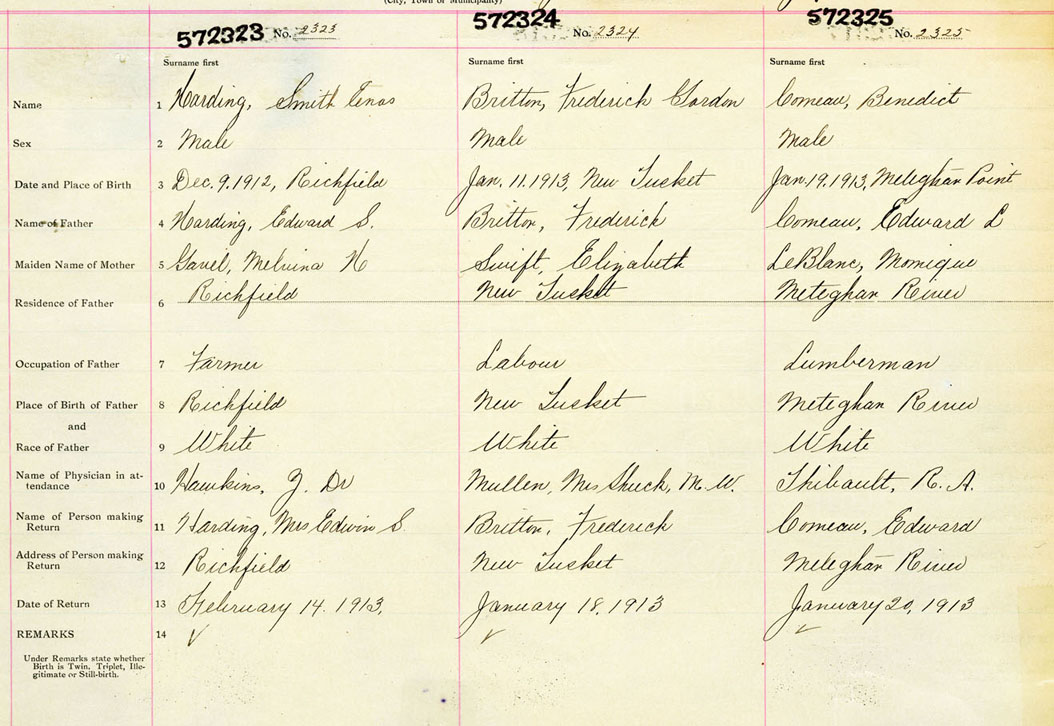 (City, Town or Municipality)
572323 No. 2323 572324 No. 2324 572325 No. 2325
Surname first Surname first Surname first
Name 1 Harding, Smith Enos Britton, Frederick Gordon Comeau, Benedict
Sex 2 Male Male Male
Date and Place of Birth 3 Dec. 9. 1912, Richfield Jan. 11. 1913, New Tusket Jan. 19. 1913, Meteghan Point
Name of Father 4 Harding, Edward S. Britton, Frederick Comeau, Edward L
Maiden Name of Mother 5 Gavel, Melvina H Swift, Elizabeth LeBlanc, Monique
Residence of Father 6 Richfield New Tusket Meteghan River
Occupation of Father 7 Farmer Labour Lumberman
Place of Birth of Father 8 Richfield New Tusket Meteghan River
and
Race of Father 9 White White White
Name of Physician in at-
tendance 10 Hawkins, Z. Dr Mullen, Mrs M. W. Thibault, R. A.
Name of Person making
Return 11 Harding, Mrs Edwin S. Britton, Frederick Comeau, Edward
Address of Person making
Return 12 Richfield New Tusket Meteghan River
Date of Return 13 February 14. 1913. January 18, 1913 January 20, 1913
REMARKS 14
Under Remarks state whether
Birth is Twin, Triplet, Ille-
gitimate or Still-birth.